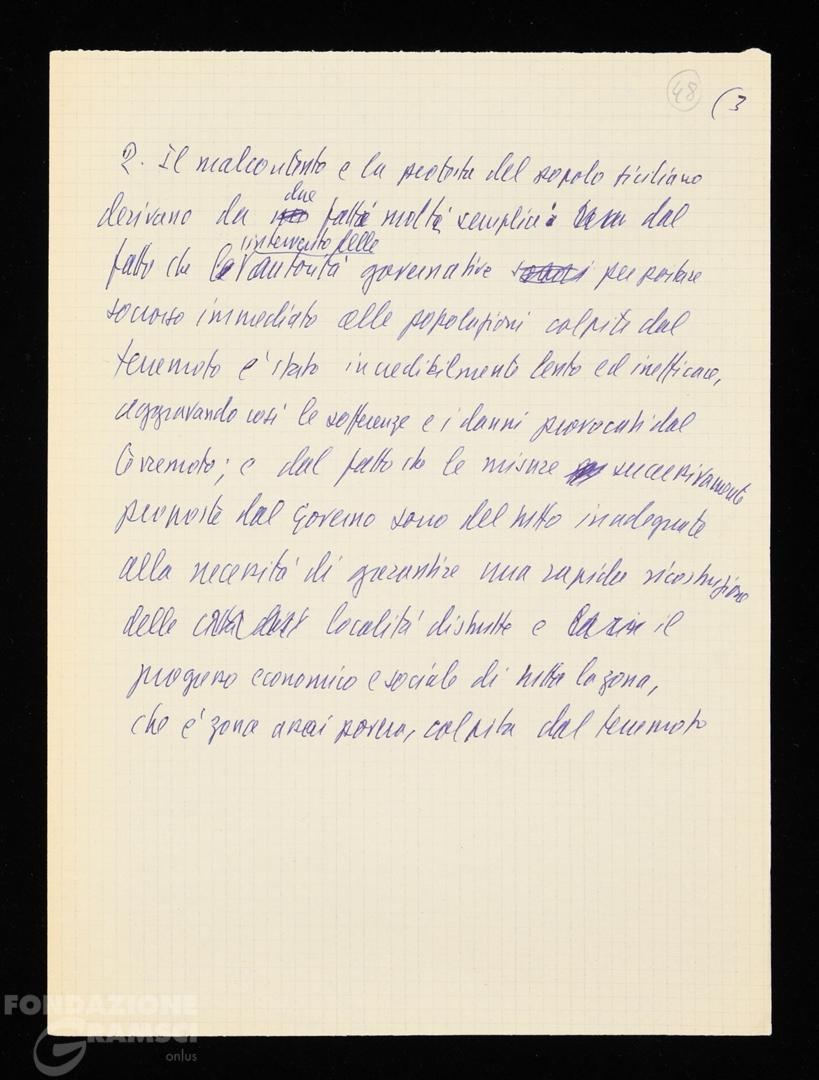 48 (3
2. Il malcontento e la protesta del popolo siciliano
due
derivano da fatti molto semplici: dal
l'intervento delle
fatto che autorità governative per portare
soccorso immediato alle popolazioni colpite dal
terremoto è stato incredibilmente lento ed inefficace,
aggravando così le sofferenze e i danni provocati dal
terremoto; e dal fatto che le misure successivamente
proposte dal Governo sono del tutto inadeguate
alla necessità di garantire una rapida ricostruzione
delle località distrutte e il
progresso economico e sociale di tutta la zona,
che è zona assai povera, colpita dal terremoto
FONDAZIONE
GRAMSCI
onlus